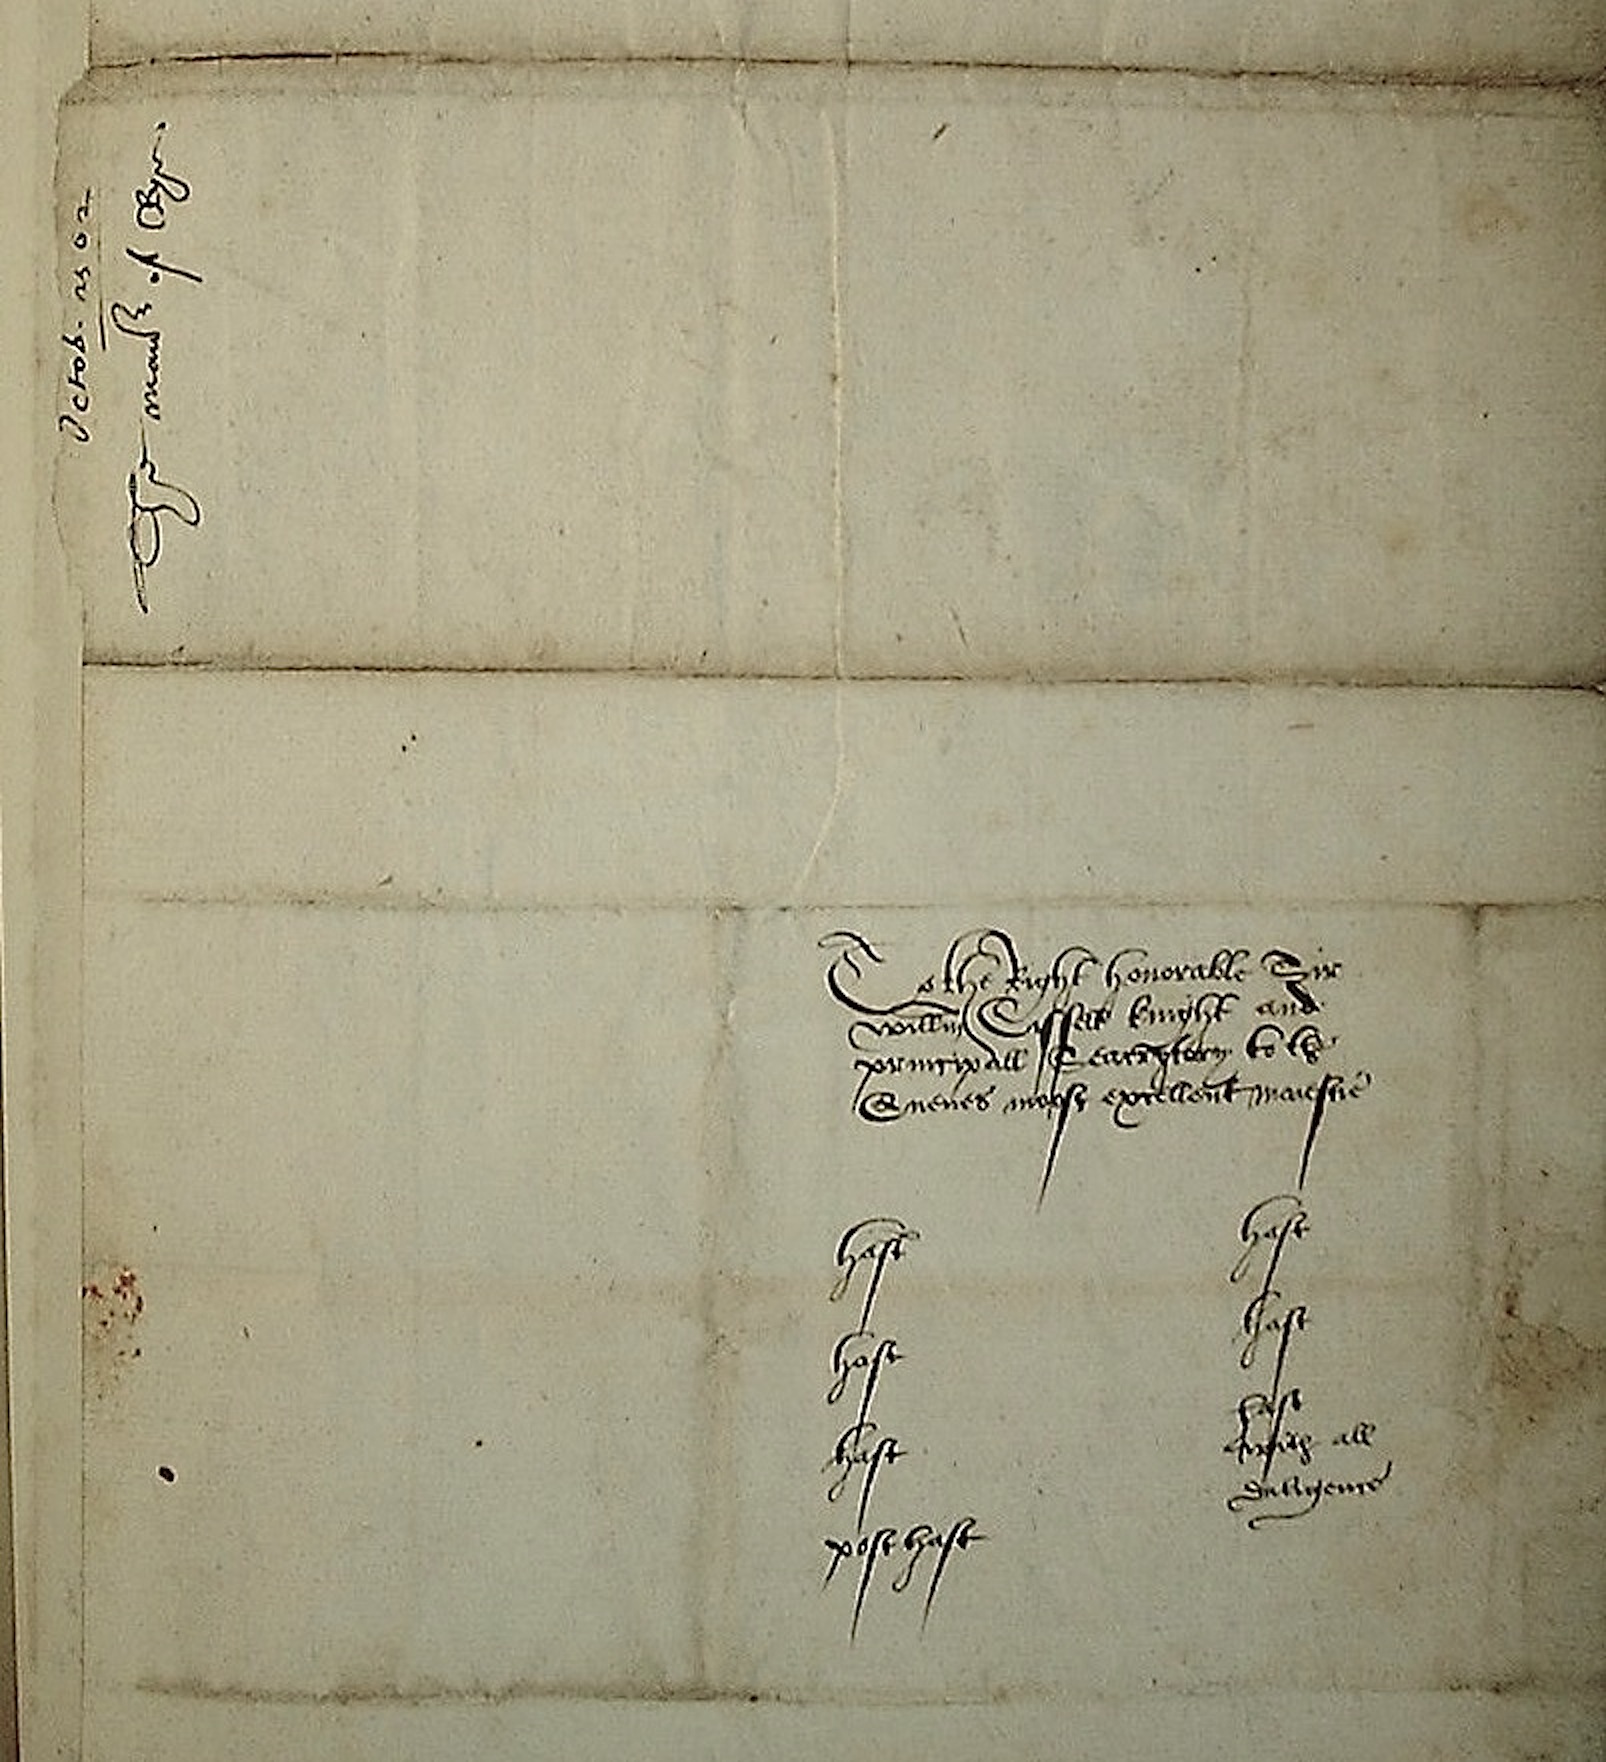 Octob. 1562
mair of Rye
To the Right honorable Sir
Willm Cissell knight and
principall Secretory to the
Quenes moost excellent maiestie
hast
hast
hast
post hast
hast
hast
hast
with all
dilligence